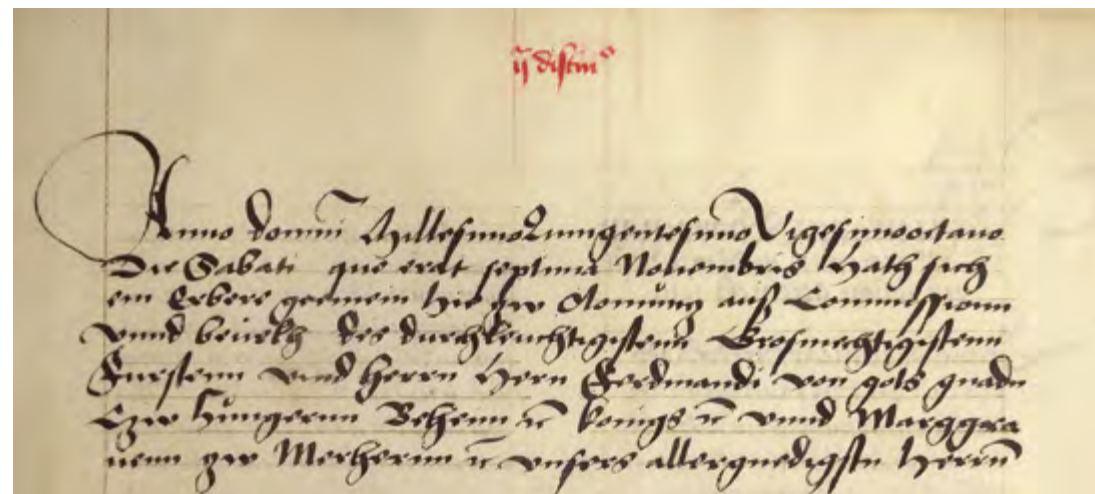 ij distinᵒ
Anno domini Millesimo Quingentesimo Vigesimooctauo
Die Sabati que erat septima Nouembris Hath sich
ein Erbere gemein hie zw Olomuntz auß Commissionn
vnnd beuelh des durchleuchtigistenn Grosmechtigistenn
Furstenn vnnd Herrn Hern Ferdinandi von gots gnadn
Czw Hungernn Behenn ꝛc konigs ꝛc vnnd Marggra
uenn zw Merhernn ꝛc vnsers allergnedigstn Herrn